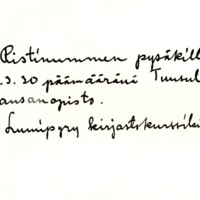 Ristinummen pysäkill
.3.30 päämääränä Tuusul
ansanopisto.
Lumipyry kirjastokurssilai